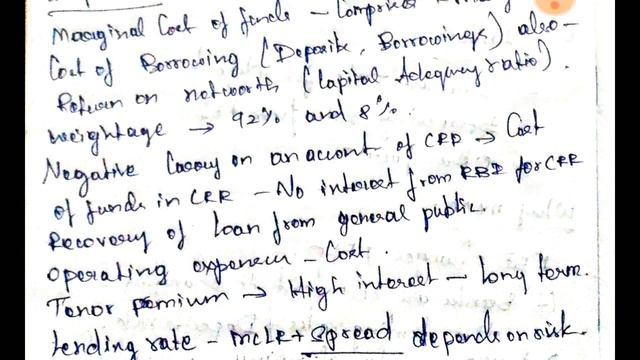 Marginal Cost of funds - Comprises
Cost of Borrowing (Deposits, Borrowings) also -
Return on networth (Capital Adequacy ratio).
weightage → 92% and 8%.
Negative Carry on an account of CRR → Cost
of funds in CRR - No interest from RBI for CRR
Recovery of loan from general public.
Operating expenses - Cost.
Tenor premium → High interest - long term.
lending rate - MCLR + Spread depends on risk.